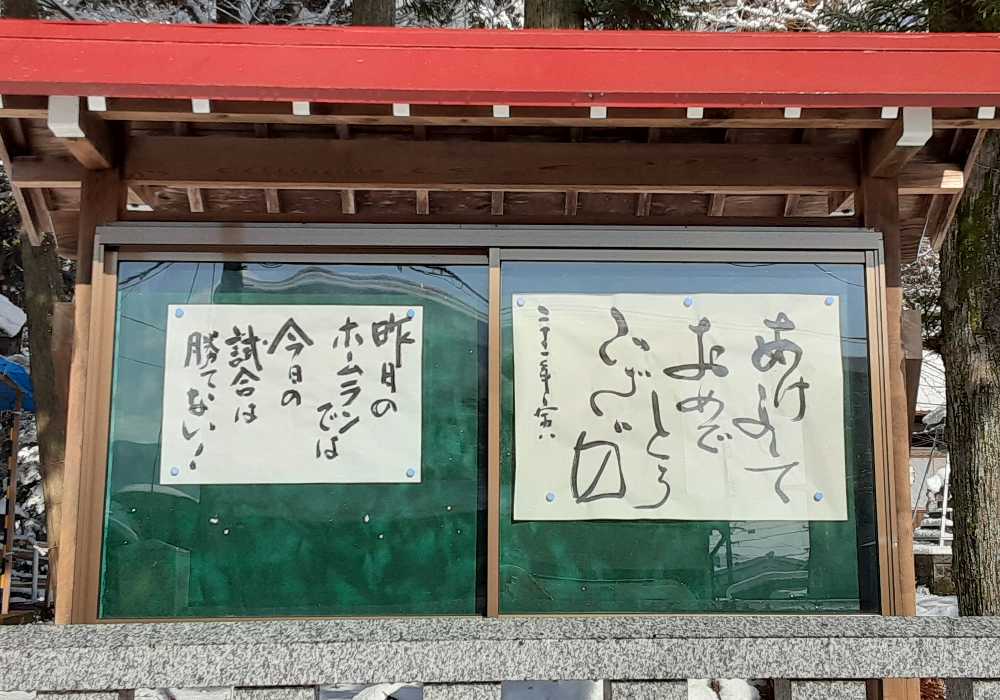 あけまして
おめで
とう
ございます
昨日の
ホームラン
では
今日の
試合は
勝てない！